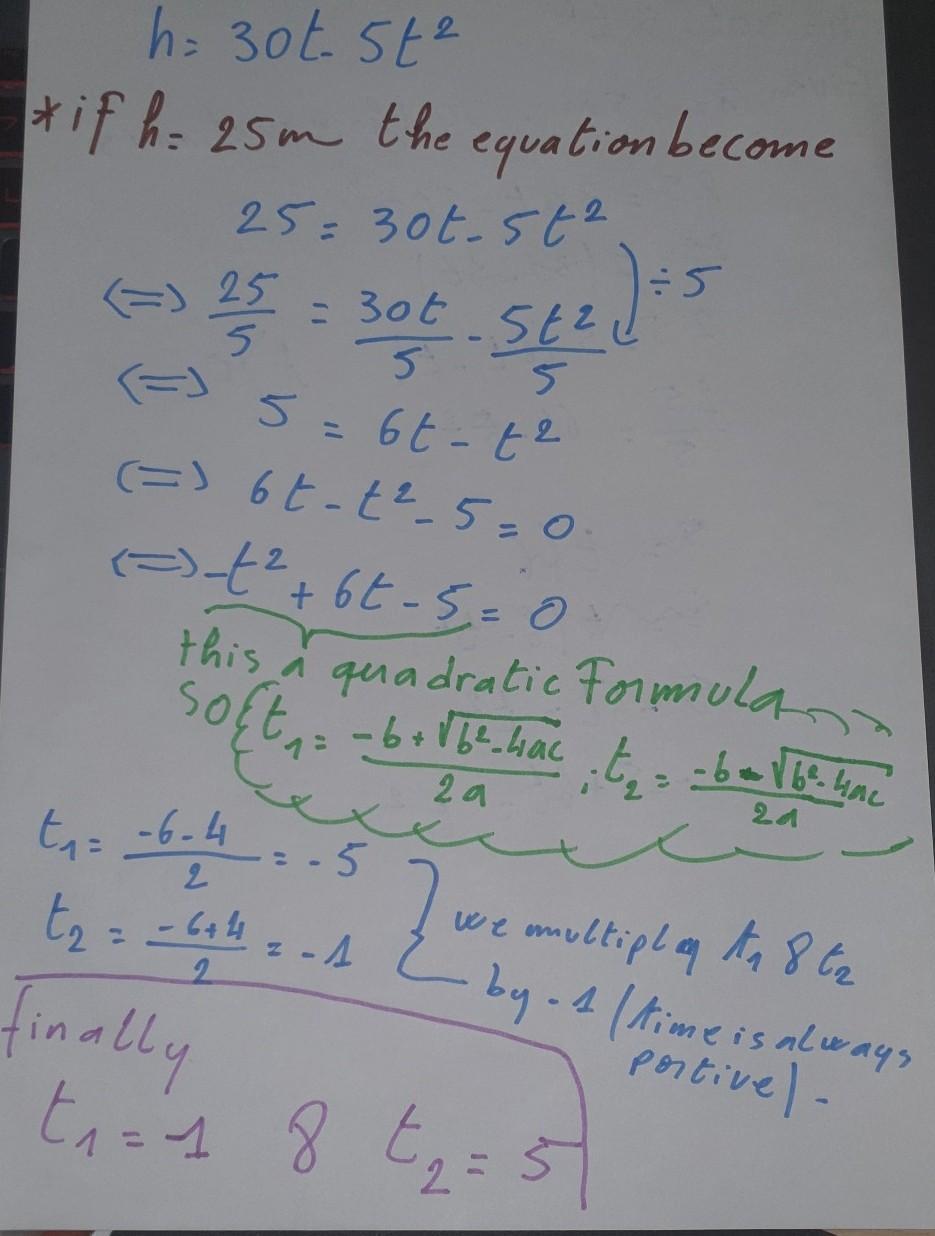 h = 30t - 5t²
* if h = 25m the equation become
25 = 30t - 5t²
÷ 5
<=> 25/5 = 30t/5 - 5t²/5
<=> 5 = 6t - t²
<=> 6t - t² - 5 = 0
<=> -t² + 6t - 5 = 0
this a quadratic Formula
SO { t₁ = (-b + √(b² - 4ac))/2a ; t₂ = (-b - √(b² - 4ac))/2a
t₁ = (-6 - 4)/2 = -5
t₂ = (-6 + 4)/2 = -1
we multiply t₁ & t₂
by -1 (time is always
portive) -
finally
t₁ = 1 & t₂ = 5